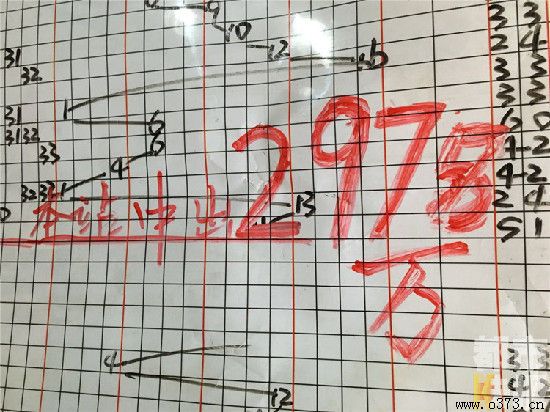 9 3 3
10
12 2 4
31 16 3 3
32
3 3
31 1 6 6 0
3132 6 4-2
33 4 4-2
32 1 2 4
13
本站中出2978万
5 1
4 3 3
12 4 2
www.o373.cn